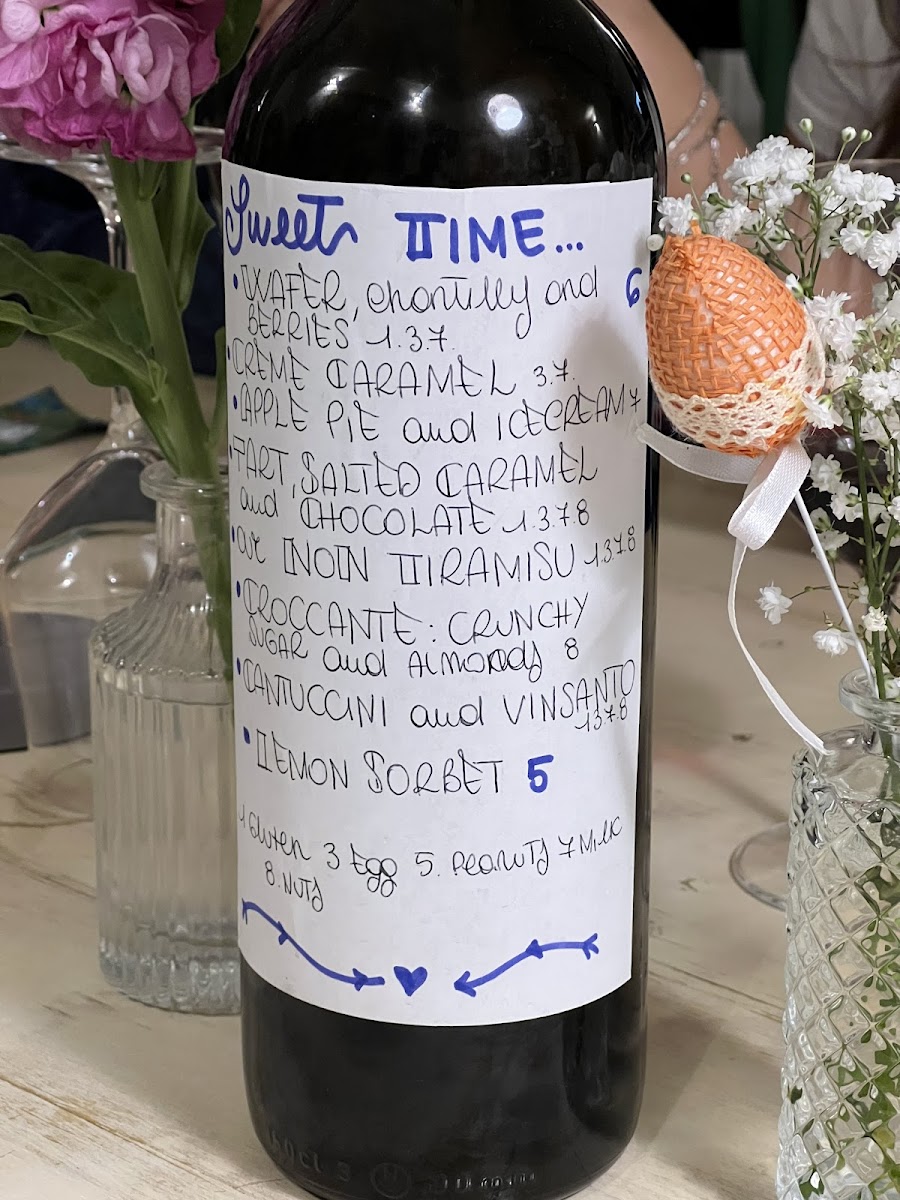 Sweets TIME...
• WAFER, chantilly and 6
BERRIES 1.3.7.
• CRÈME CARAMEL 3.7.
• APPLE PIE and ICECREAM 7
• TART, SALTED CARAMEL
and CHOCOLATE 1.3.7.8
• our INOIN TIRAMISU 1.3.7.8
• CROCCANTE: CRUNCHY
SUGAR and ALMONDS 8
• CANTUCCINI and VINSANTO
1.3.7.8
• LEMON SORBET 5
1 Gluten 3 Egg 5. Peanuts 7 Milk
8. NUTS